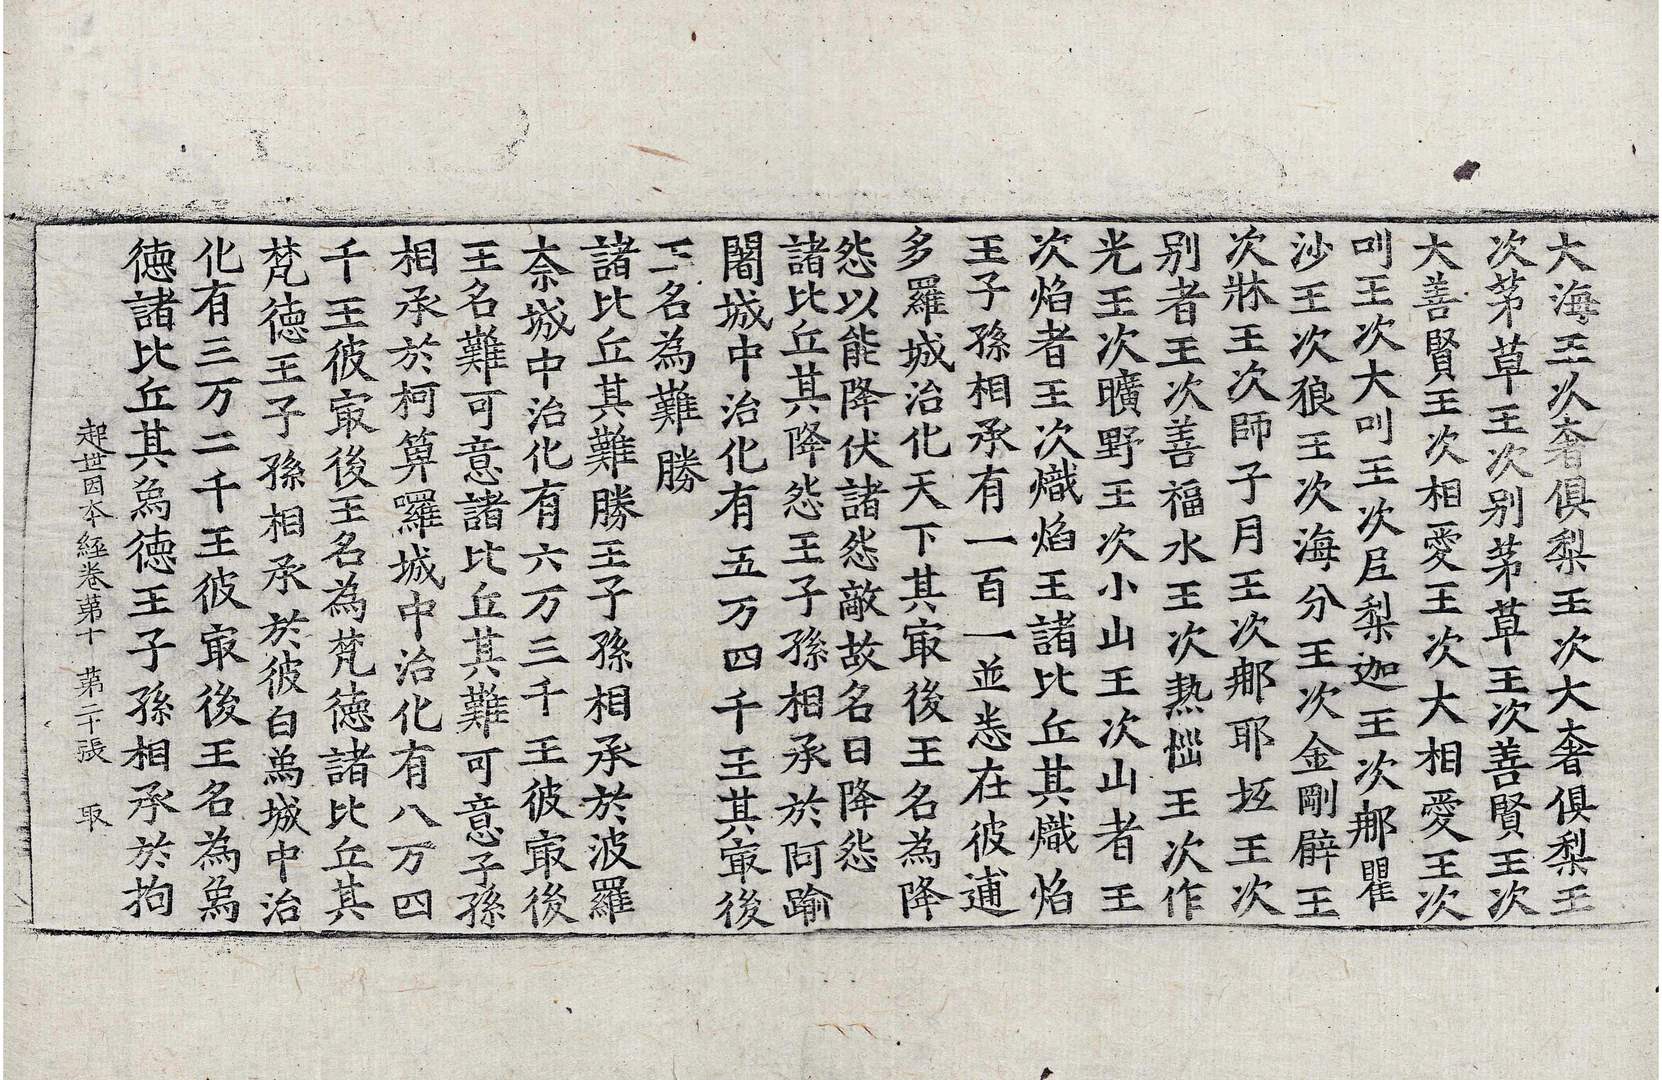 大海王次奢俱梨王次大奢俱梨王
次茅草王次别茅草王次善賢王次
大善賢王次相愛王次大相愛王次
叫王次大叫王次尼梨迦王次那瞿
沙王次狼王次海分王次金剛臂王
次牀王次師子月王次那耶坻王次
别者王次善福水王次熱惱王次作
光王次曠野王次小山王次山者王
次焰者王次熾焰王諸比丘其熾焰
王子孫相承有一百一並悉在彼逋
多羅城治化天下其㝡後王名為降
怨以能降伏諸怨敵故名曰降怨
諸比丘其降怨王子孫相承於阿踰
闍城中治化有五万四千王其㝡後
王名為難勝
諸比丘其難勝王子孫相承於波羅
奈城中治化有六万三千王彼㝡後
王名難可意諸比丘其難可意子孫
相承於柯箄囉城中治化有八万四
千王彼㝡後王名為梵徳諸比丘其
梵徳王子孫相承於彼白為城中治
化有三万二千王彼㝡後王名為為
徳諸比丘其為徳王子孫相承於拘
起世因本經卷第十 第二十張 取